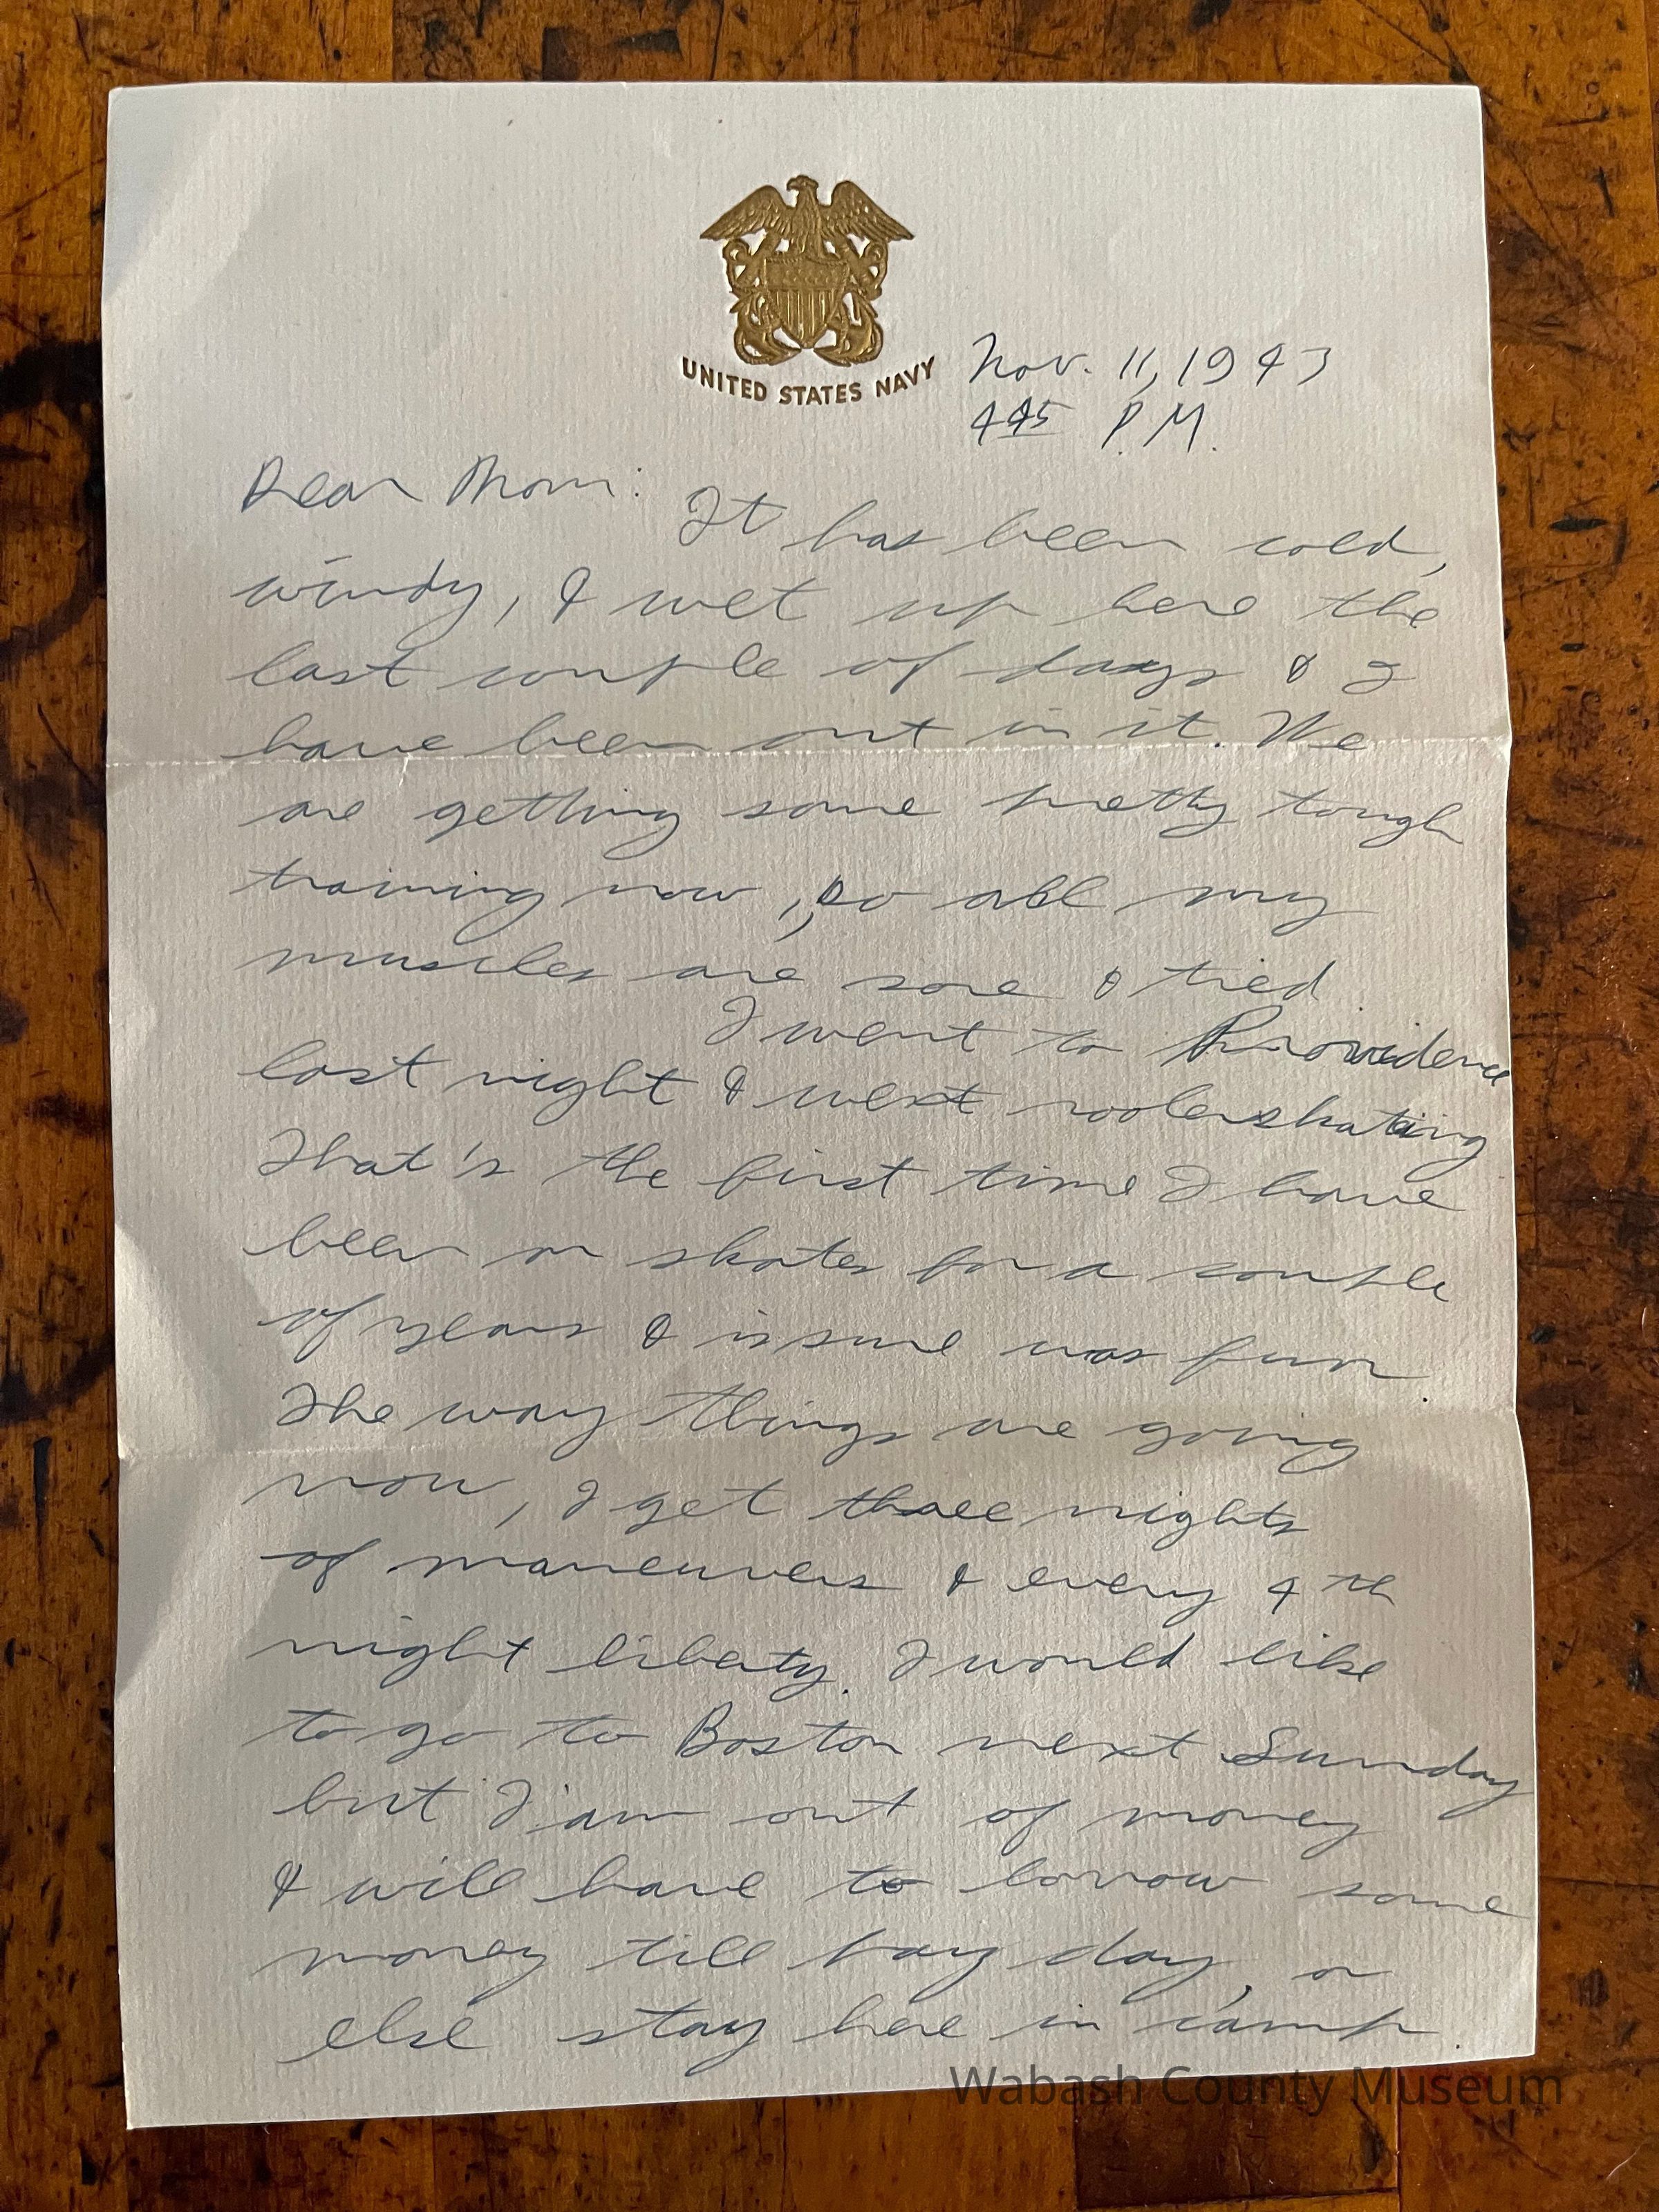 UNITED STATES NAVY
Nov. 11, 1943
4 45 P.M.
Dear Mom:
It has been cold,
windy, & wet up here the
last couple of days & I
have been out in it. We
are getting some pretty tough
training now, so all my
muscles are sore & tied.
I went to Providence
last night & went roolerskating
That's the first time I have
been on skates for a couple
of years & is sure was fun.
The way things are going
now, I get three nights
of maneuvers & every 4th
night liberty. I would like
to go to Boston next Sunday
but I'am out of money
& will have to borrow some
money till pay day, or
else stay here in camp.
Wabash County Museum